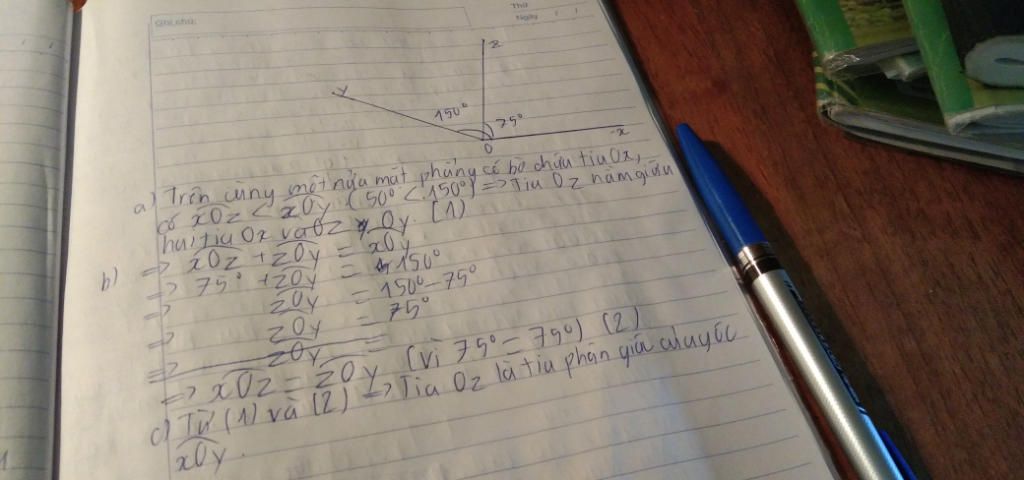 Ghi chú:
Thứ
Ngày / /
z
y
150°
75°
O
x
a) Trên cùng một nửa mặt phẳng có bờ chứa tia Ox,
có xOz < xOy (50° < 150°) => Tia Oz nằm giữa
hai tia Ox và Oz Oy. (1)
b) => xOz + zOy = xOy
=> 75° + zOy = 150°
=> zOy = 150° - 75°
=> zOy = 75°
=> zOy =
=> xOz = zOy (vì 75° = 75°) (2)
c) Từ (1) và (2) => Tia Oz là tia phân giác của góc
xOy.